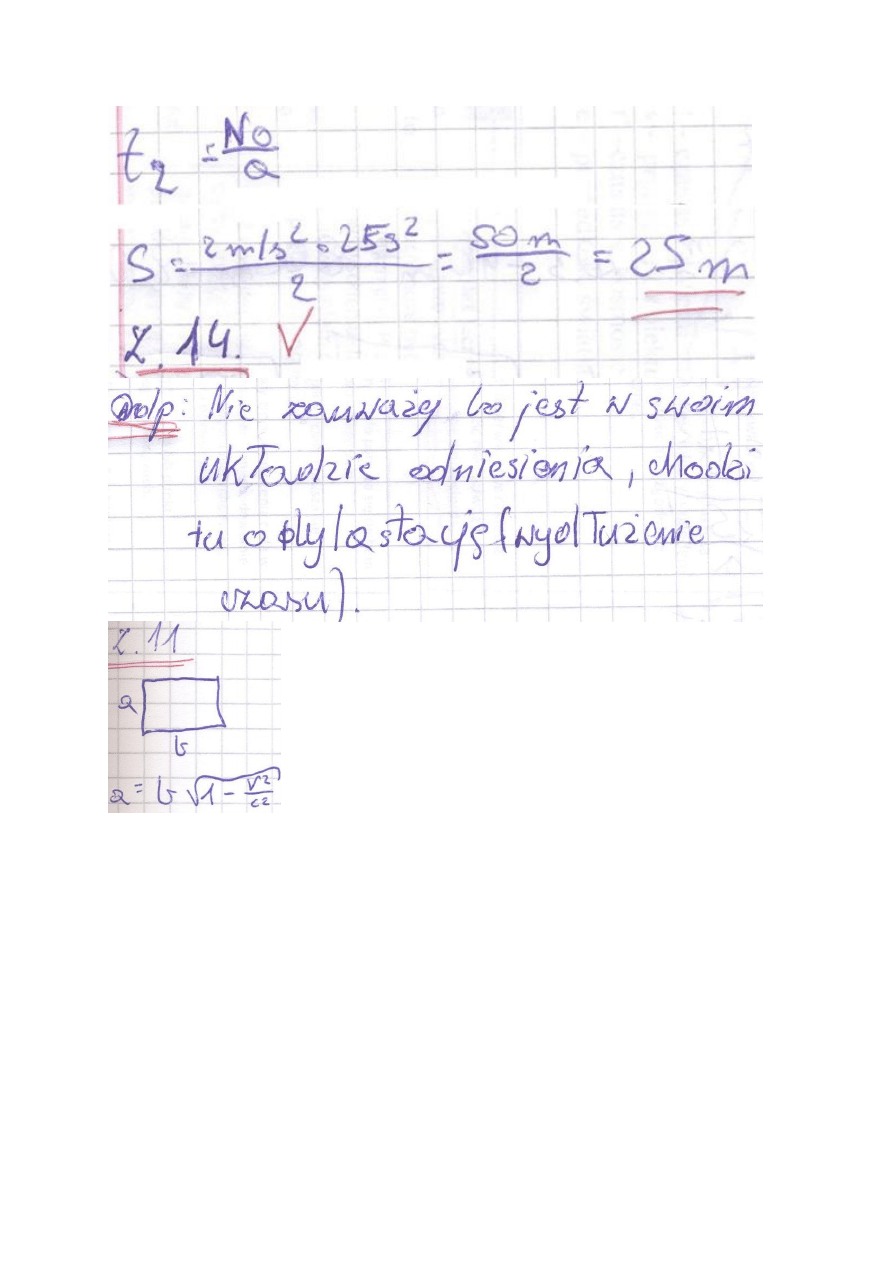 t₂ = No/a
S = 2m/s² · 25s²/2 = 50m/2 = 25m
Z. 14. √
Odp: Nie zauważy bo jest w swoim
układzie odniesienia, chodzi
tu o dylastację (wydłużenie
czasu).
Z. 11
a
b
a = b √1 - V²/c²